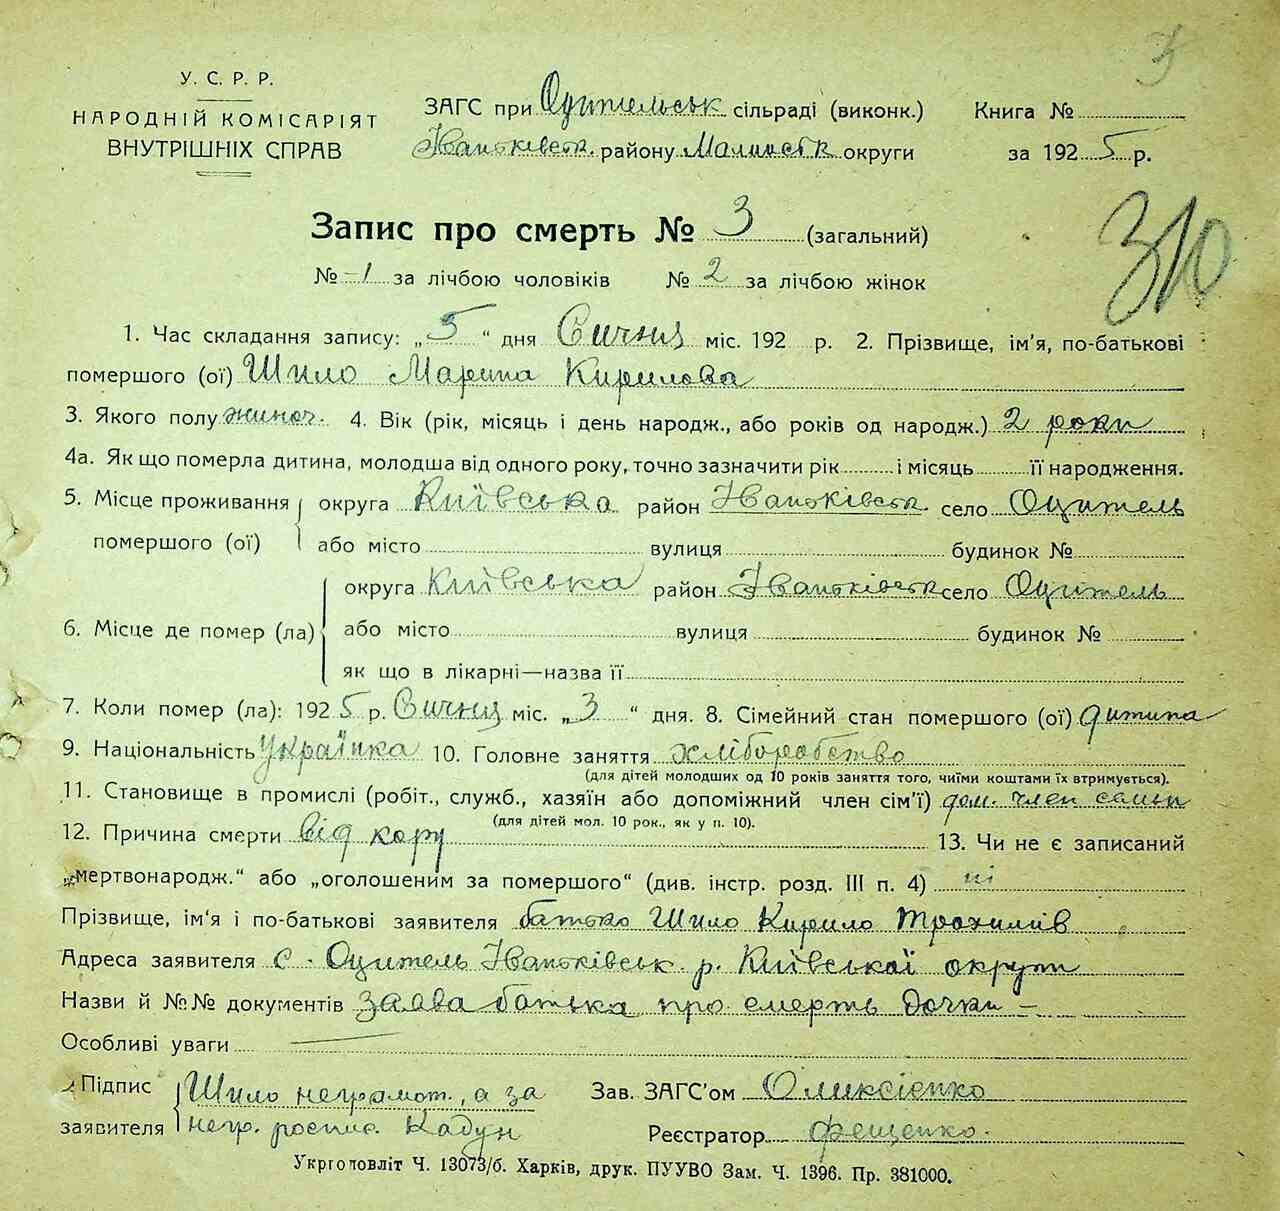 5
У. С. Р. Р.
НАРОДНІЙ КОМІСАРІЯТ
ВНУТРІШНІХ СПРАВ
ЗАГС при Оцительськ сільраді (виконк.)
Іванківськ. району Малинськ округи
Книга №
за 1925 р.
Запис про смерть № 3 (загальний)
310
№ -1 за лічбою чоловіків № 2 за лічбою жінок
1. Час складання запису: „5“ дня Січня міс. 192 р. 2. Прізвище, ім'я, по-батькові
помершого (ої) Шило Марина Кирилова
3. Якого полу жиноч. 4. Вік (рік, місяць і день народж., або років од народж.) 2 роки
4а. Як що померла дитина, молодша від одного року, точно зазначити рік і місяць її народження.
5. Місце проживання округа Київська район Іванківськ село Оцитель
помершого (ої) або місто вулиця будинок №
округа Київська район Іванківськ село Оцитель
6. Місце де помер (ла) або місто вулиця будинок №
як що в лікарні—назва її
7. Коли помер (ла): 1925 р. Січня міс. „3“ дня. 8. Сімейний стан помершого (ої) дитина
9. Національність Українка 10. Головне заняття хліборобство
(для дітей молодших од 10 років заняття того, чиїми коштами їх втримується).
11. Становище в промислі (робіт., служб., хазяїн або допоміжний член сім'ї) доп. член семьи
(для дітей мол. 10 рок., як у п. 10).
12. Причина смерти від кору 13. Чи не є записаний
„мертвонародж.“ або „оголошеним за помершого“ (див. інстр. розд. III п. 4) ні
Прізвище, ім'я і по-батькові заявителя батько Шило Кирило Трохимів
Адреса заявителя с. Оцитель Іванківськ р. Київської округи
Назви й №№ документів заява батька про смерть дочки —
Особливі уваги —
Підпис Шило неграмот., а за
заявителя негр. роспис. Кадун
Зав. ЗАГС'ом Оликсієнко
Реєстратор Фещенко.
Укрголовліт Ч. 13073/б. Харків, друк. ПУУВО Зам. Ч. 1396. Пр. 381000.